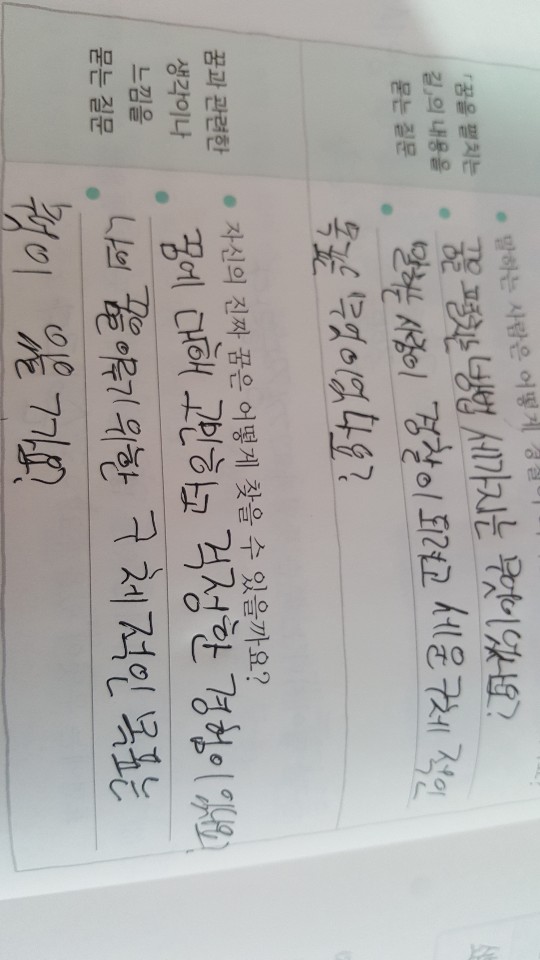 「꿈을 펼치는
길」의 내용을
묻는 질문
말하는 사람은 어떻게
꿈을 펼치는 방법 세가지는 무엇이었나요?
말하는 사람이 경찰이 되려고 세운 구체 적인
목표는 무엇이었나요?
꿈과 관련한
생각이나
느낌을
묻는 질문
자신의 진짜 꿈은 어떻게 찾을 수 있을까요?
꿈에 대해 고민하고 걱정한 경험이 있나요?
나의 꿈을 이루기 위한 구 체 적인 목표는
있을까요?